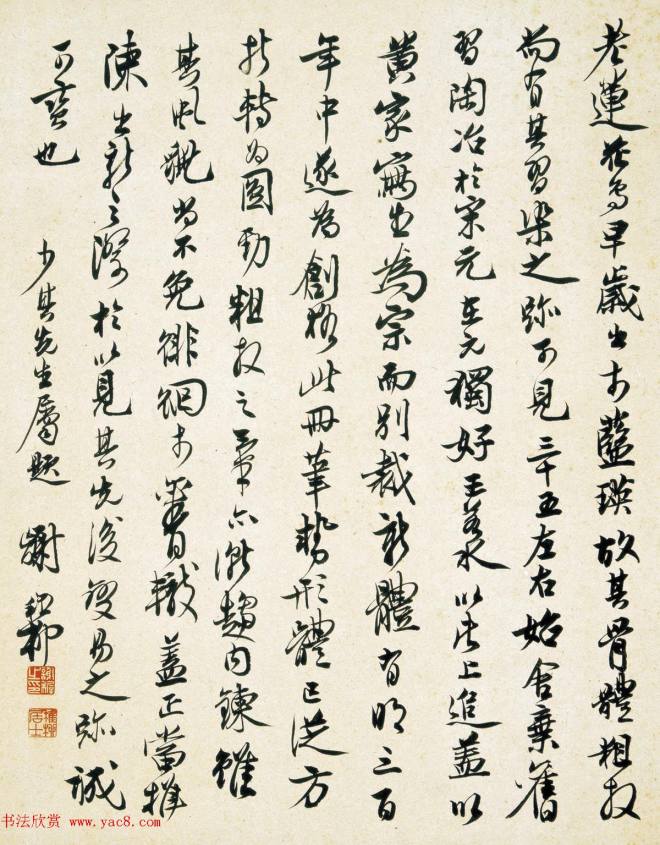 老蓮花鳥早歲出於藍瑛故其骨體粗放
尚有其習染之跡可見三十五左右始舍棄舊
習陶冶於宋元在元獨好王若水以此上追蓋以
黃家寫生為宗而別裁新體有明三百
年中遂為創格此冊筆勢形體已從方
折轉為圓勁粗放之筆亦漸趨內鍊雖
其風貌尚不免徘徊於舊轍蓋正當推
陳出新之際於以見其先後變易之跡誠
可寶也
少其先生屬題 謝稚柳
书法欣赏 www.yac8.com